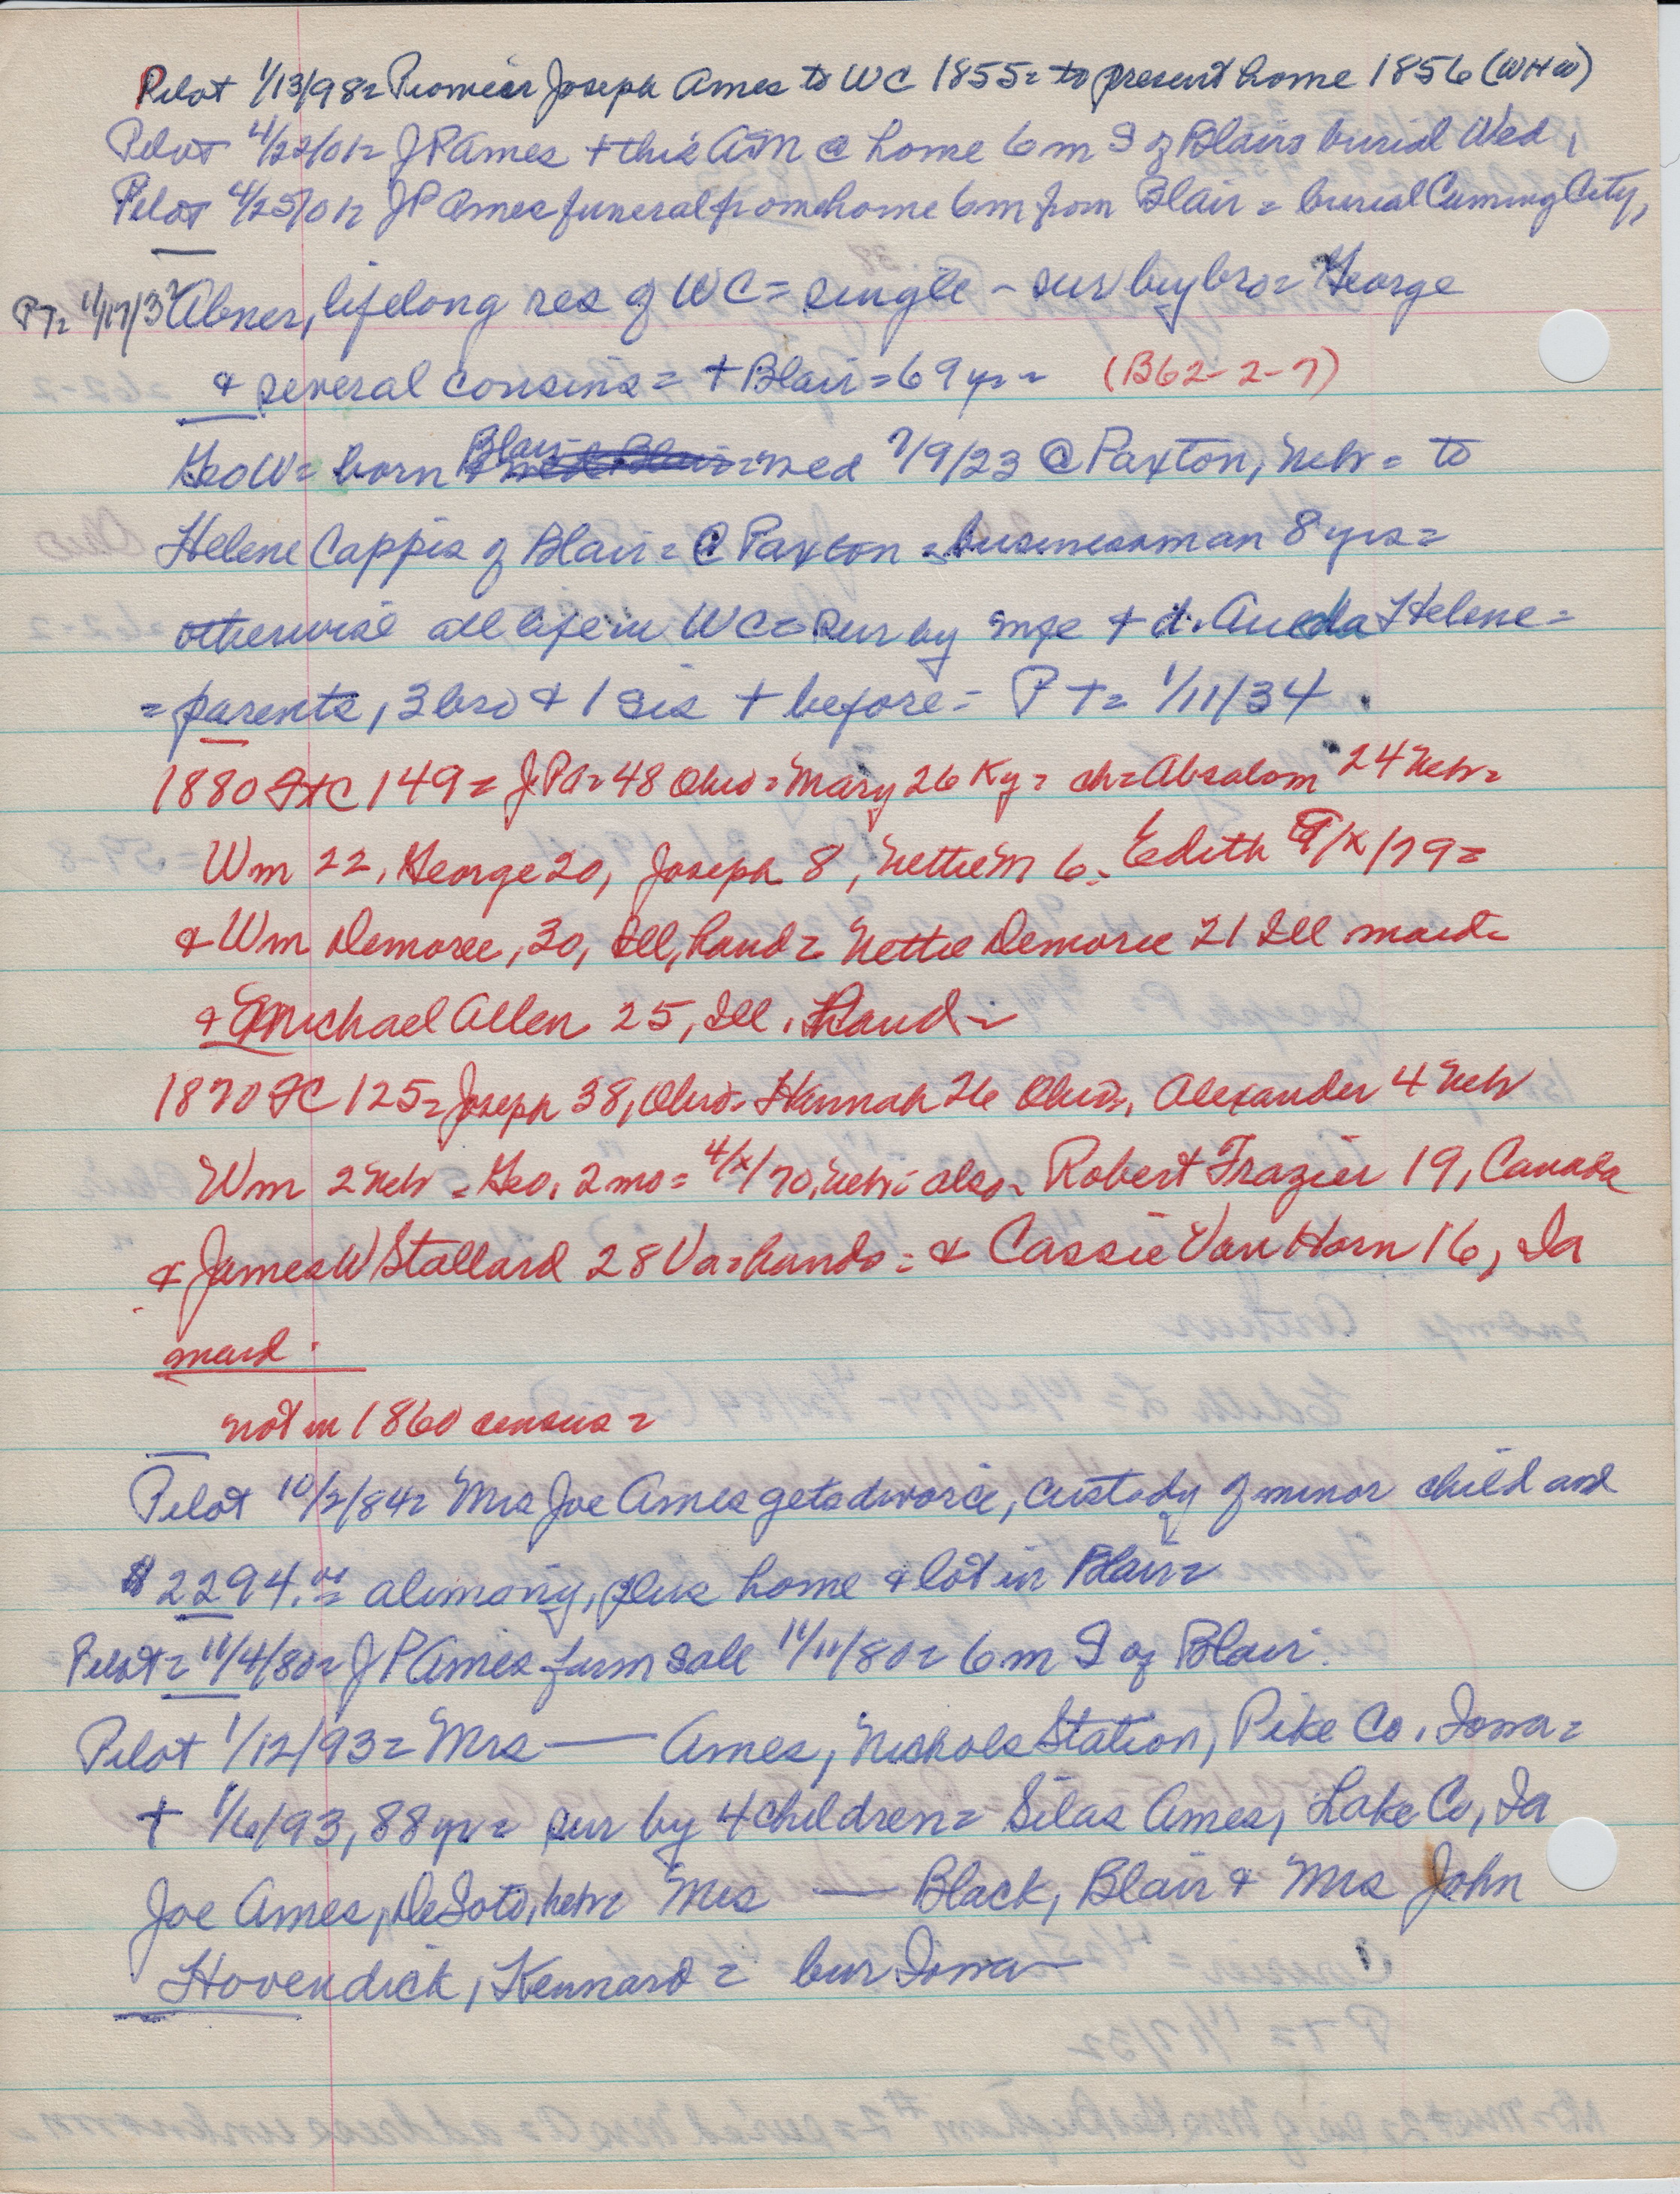 Pilot 1/13/98= Pioneer Joseph Ames to WC 1855= to present home 1856 (WHW)
Pilot 4/22/01= JP Ames + this AM @ home 6 m S of Blair= burial Wed,
Pilot 4/25/01= JP Ames funeral from home 6m from Blair = burial Cuming City,
PT= 11/17/32 Abner, lifelong res of WC= single - sur by bro= George
& several cousins = + Blair = 69 yr = (B62-2-7)
Geo W= born Blair = med 7/9/23 @ Paxton, Nebr = to
Helene Cappis of Blair = @ Paxton = businessman 8 yrs =
otherwise all life in WC= sur by mge + d. Helene =
= parents, 3 bro & 1 sis + before = PT= 1/11/34
1880 FtC 149 = JPA= 48 Ohio = Mary 26 Ky = ch= Absalom 24 Nebr=
Wm 22, George 20, Joseph 8, Nettie M 6, Edith 9/x/79=
& Wm Demoree, 30, Ill, hand = Nettie Demoree 21 Ill maid=
& Michael Allen 25, Ill, Hand =
1870 FC 125= Joseph 38, Ohio= Hannah 26 Ohio, Alexander 4 Nebr
Wm 2 Nebr = Geo, 2 mo = 4/x/70, Nebr= also= Robert Frazier 19, Canada
& James W Stallard 28 Va= hands = & Cassie Van Horn 16, Ia
maid.
not in 1860 census =
Pilot 10/2/84= Mrs Joe Ames gets divorce, custody of minor child and
$2294.00= alimony, plus home & lot in Blair=
Pilot= 11/4/80= JP Ames farm sale 11/11/80= 6 m S of Blair.
Pilot 1/12/93= Mrs — Ames, Nichols Station, Pike Co. Iowa=
+ 1/6/93, 88 yr = sur by 4 children= Silas Ames, Lake Co, Ia
Joe Ames, DeSoto, Nebr= Mrs — Black, Blair & Mrs John
Hovendick, Kennard = bur Iowa